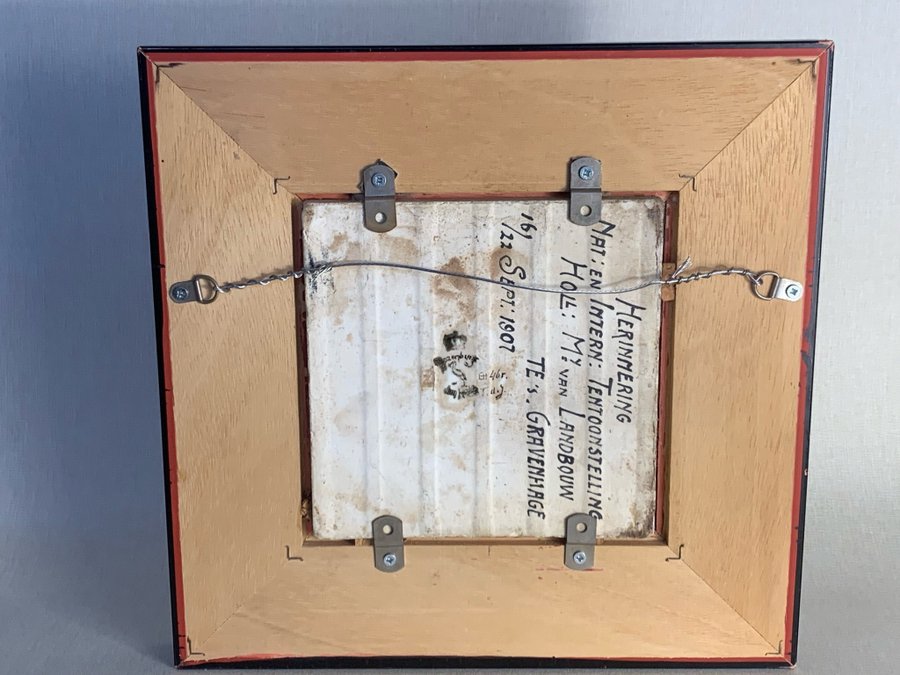 HERINNERING
NAT: EN INTERN: TENTOONSTELLING
HOLL: MY: VAN LANDBOUW
TE 's. GRAVENHAGE
16/22 SEPT: 1907